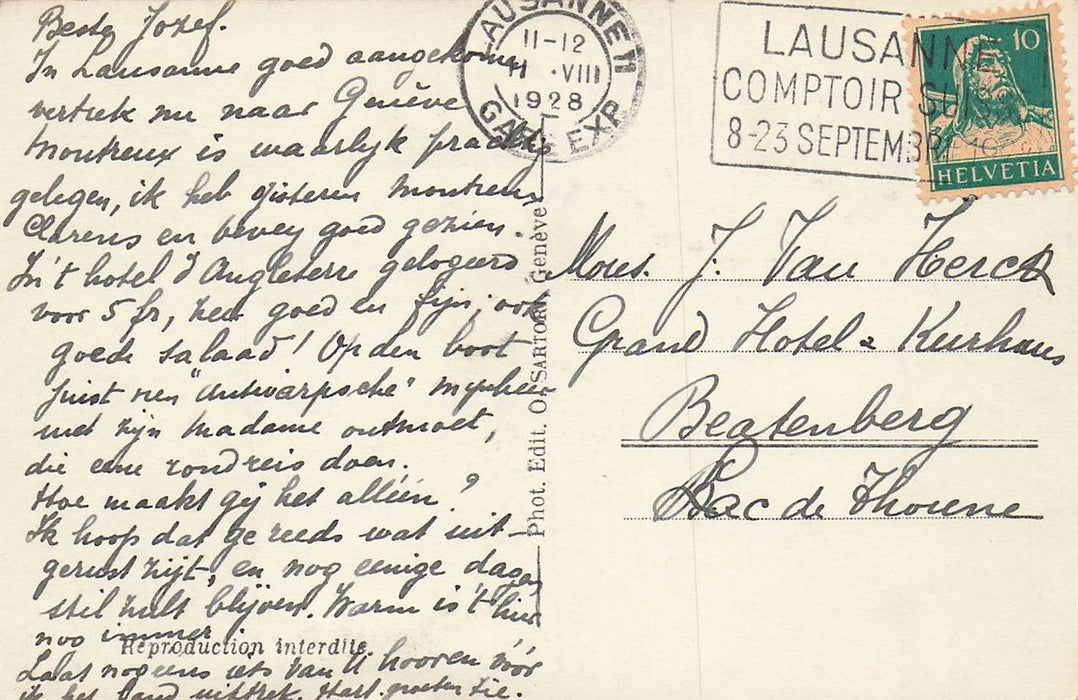 Beste Jozef.
In Lausanne goed aangekomen
vertrek nu naar Genève
Montreux is waarlijk prachtig
gelegen, ik heb gisteren Montreux
Clarens en Vevey goed gezien.
In 't hotel d'Angleterre gelogeerd
voor 5 fr, zeer goed en fijn, ook
goede salaad! Op den boot
juist nen "Antwarpsche" mynheer
met zijn Madame ontmoet,
die eene rondreis doen.
Hoe maakt gij het alléén?
Ik hoop dat ge reeds wat uit-
gerust zijt, en nog eenige dagen
stil zult blijven. Warm is 't hier
nog immer.
Laat nog eens iets van U hooren vóór
ik het land uittrek. Hart. groeten
Reproduction interdite.
Phot. Edit. O. SARTORI, Genève
LAUSANNE 11
11-12
11 . VIII
1928
GARE EXP.
LAUSANNE
COMPTOIR SU
8-23 SEPTEMBRE
10
HELVETIA
Mons. J. Van Herck
Grand Hotel & Kurhaus
Beatenberg
Lac de Thoune